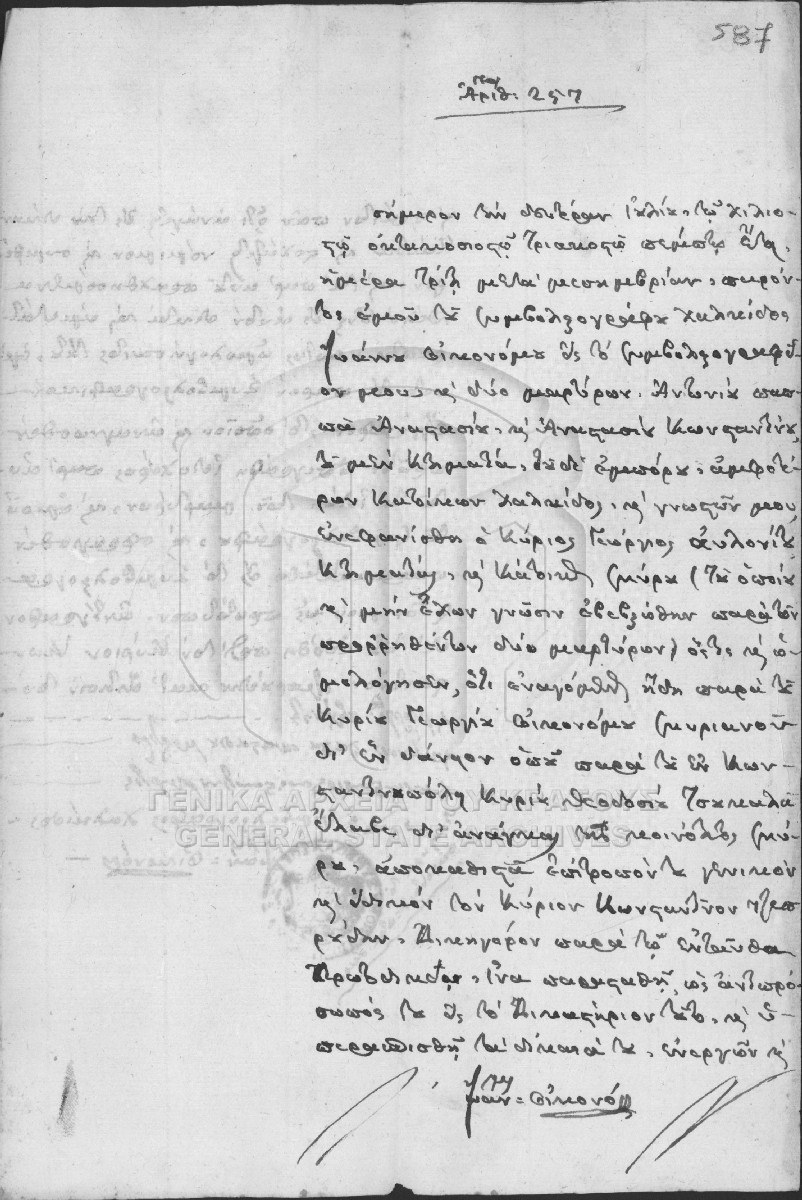 587
Ἀριθ: 257
σήμερον τὴν δευτέραν Ἰουλίου, τοῦ χιλιο-
στοῦ ὀκτακοσιοστοῦ τριακοστοῦ πέμπτου ἔτους,
ἡμέρᾳ τρίτῃ μετὰ μεσημβρίαν, παρόν-
τος ἐμοῦ τοῦ συμβολαιογράφου Χαλκίδος
Ἰωάννου Οἰκονόμου εἰς τὸ συμβολαιογραφεῖ-
ον μου, καὶ δύο μαρτύρων, Ἀντωνίου παπ-
πᾶ Ἀναστασίου, καὶ Ἀναστασίου Κωνσταντίνου,
τοῦ μὲν κτηματίου, τοῦ δὲ ἐμπόρου, ἀμφοτέ-
ρων κατοίκων Χαλκίδος, καὶ γνωστῶν μου,
ἐνεφανίσθη ὁ Κύριος Γεώργιος Αὐλονίτου
κτηματίας, καὶ κάτοικος Σκύρου (τοῦ ὁποίου
καὶ μὴν ἔχων γνῶσιν ἐβεβαιώθην παρὰ τῶν
προῤῥηθέντων δύο μαρτύρων) ὅστις καὶ ὡ-
μολόγησεν, ὅτι ἐναγόμενος ἤδη παρὰ τοῦ
Κυρίου Γεωργίου Οἰκονόμου Σκυριανοῦ
δι' ἓν δάνειον ὁποῦ παρὰ τοῦ ἐν Κων-
σταντινουπόλει Κυρίου Θεοδοσίου Τσουκαλᾶ
ἔλαβε δι' ἀνάγκην τῆς κοινότητος Σκύ-
ρου, ἀποκαθιστᾶ ἐπίτροπόν του γενικὸν
καὶ εἰδικὸν τὸν Κύριον Κωνσταντῖνον
Δικηγόρον παρὰ τῷ ἐνταῦθα
Πρωτοδικείῳ, ἵνα παρασταθῇ ὡς ἀντιπρό-
σωπός του εἰς τὸ Δικαστήριον τοῦτο, καὶ ὑ-
περασπισθῇ τὰ δίκαιά του, ἐνεργῶν καὶ
Ἰωάν= Οἰκονόμου
ΓΕΝΙΚΑ ΑΡΧΕΙΑ ΤΟΥ ΚΡΑΤΟΥΣ
GENERAL STATE ARCHIVES